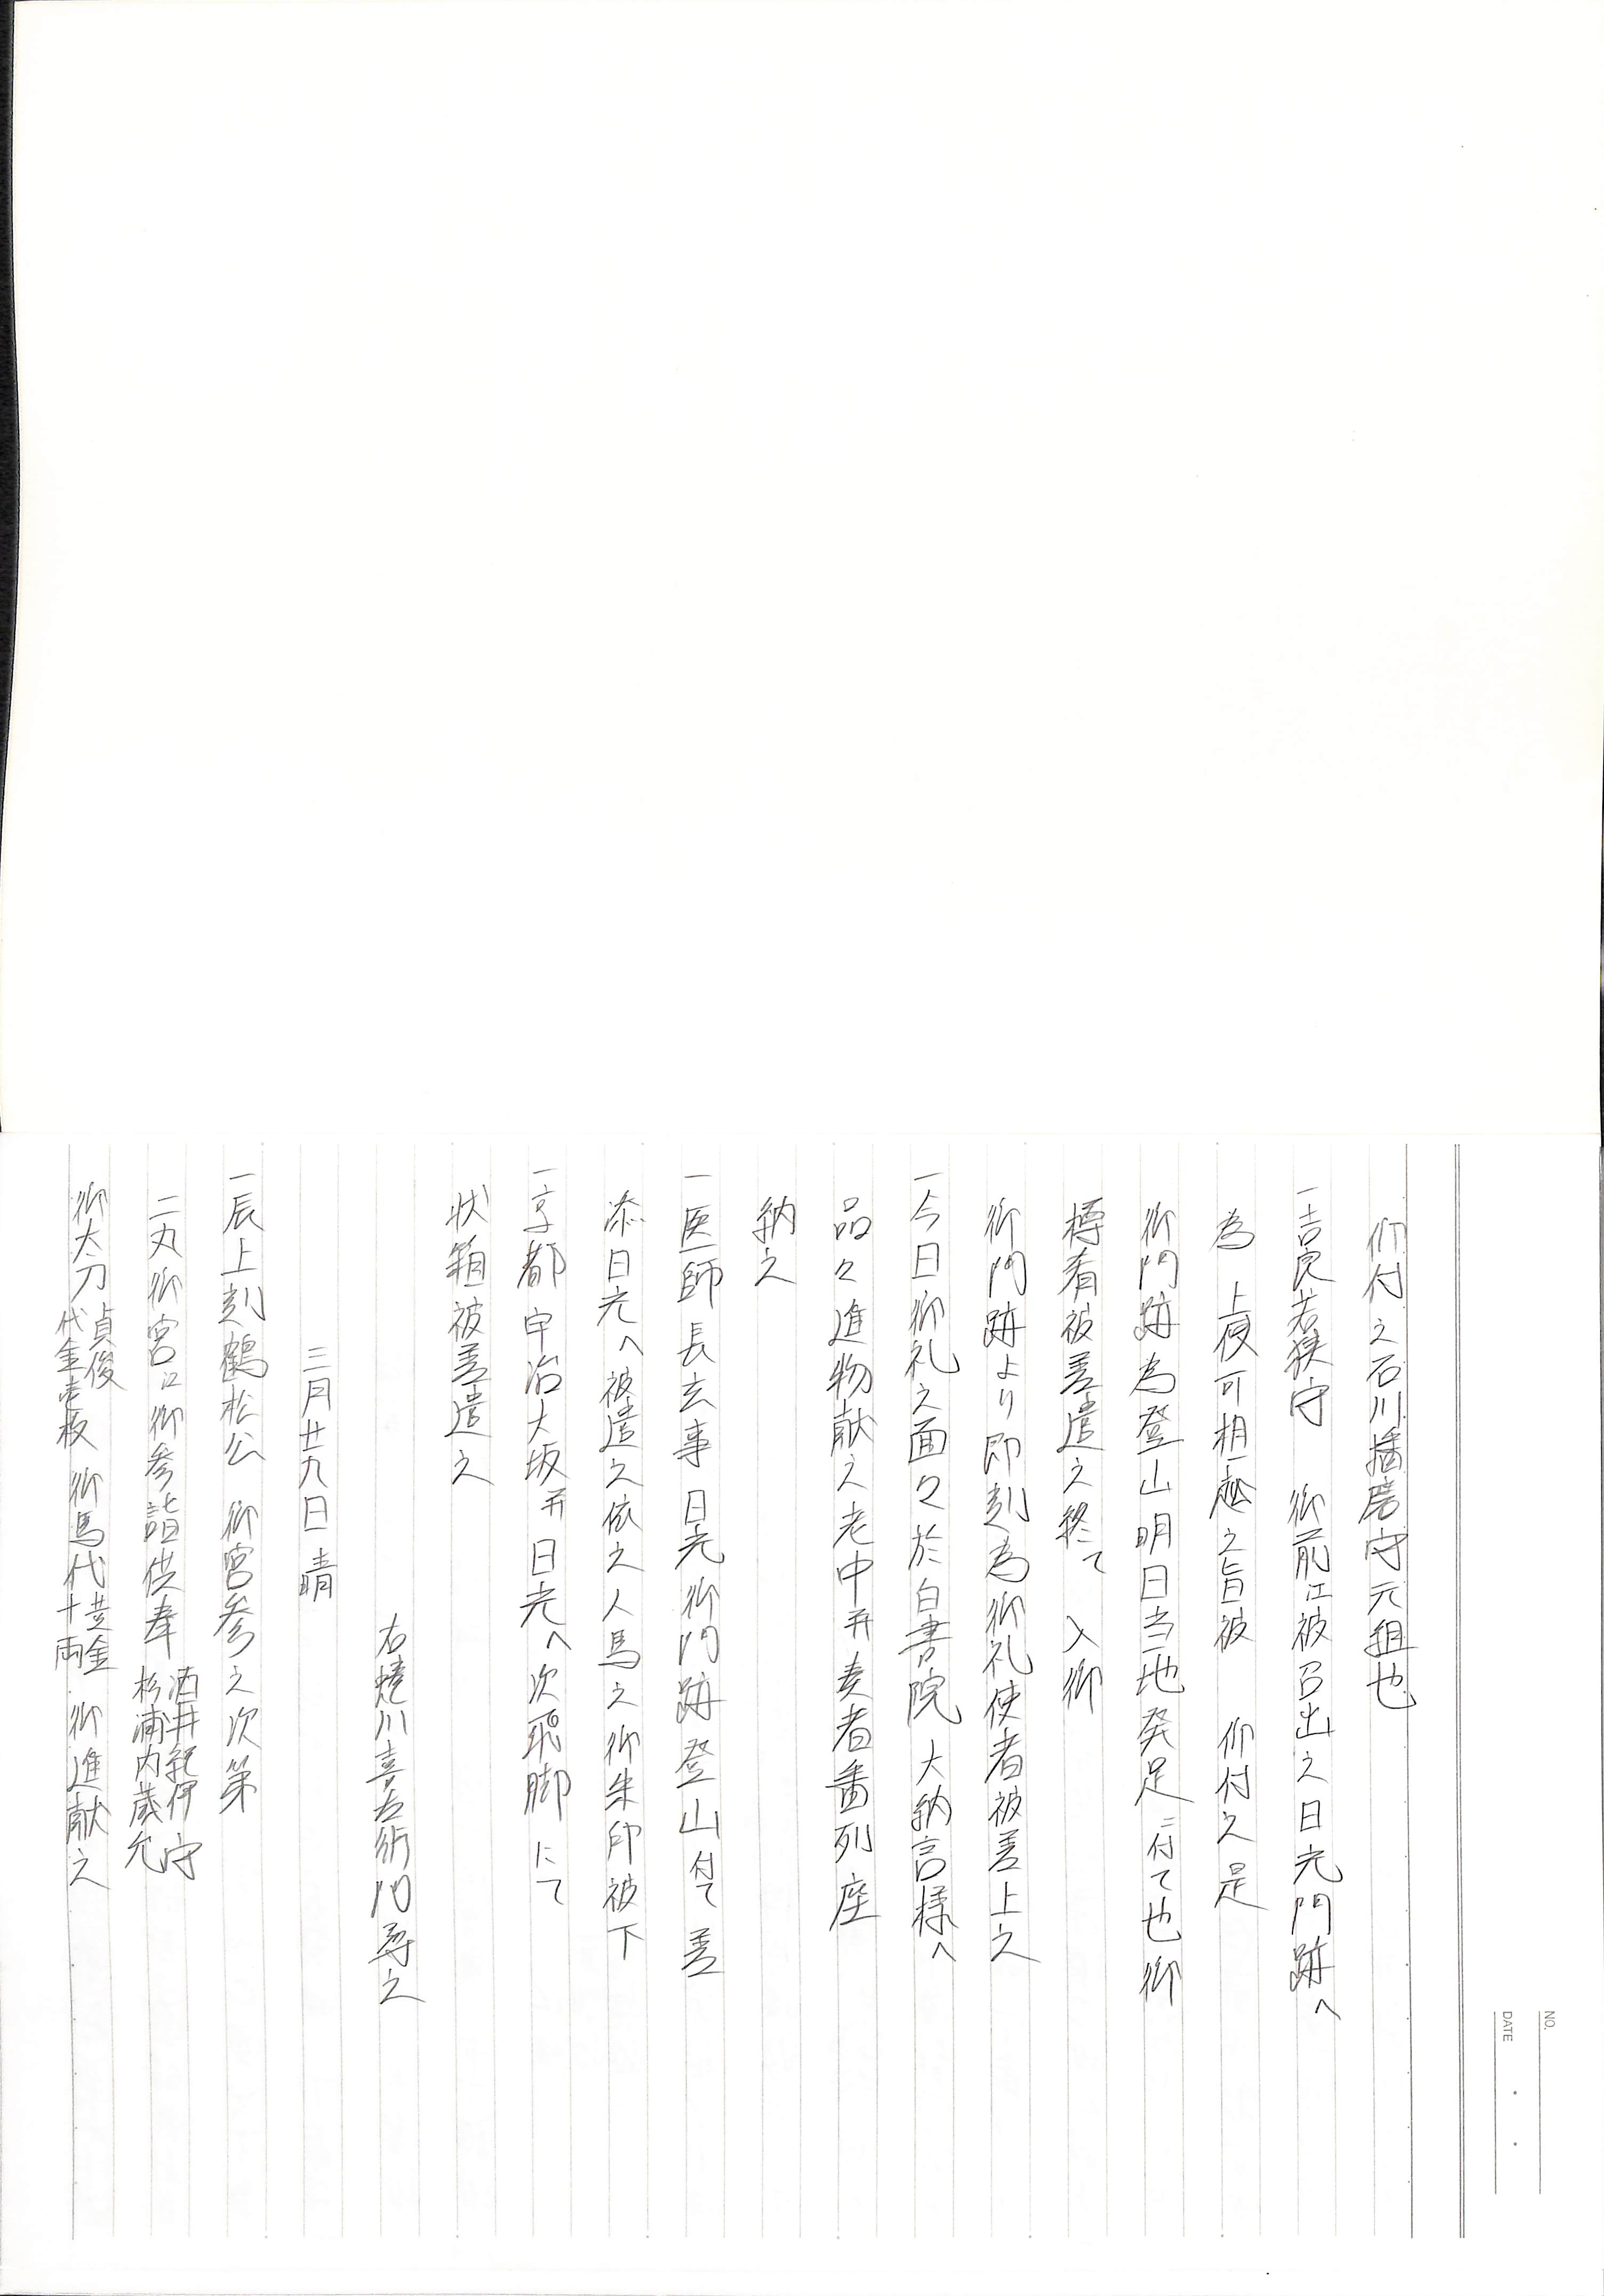 仰付之石川播磨守元組也
一吉良若狭守　御前江被召出之日光門跡へ
為　上使可相越之旨被　仰付之是
御門跡為登山明日当地発足ニ付て也御
樽肴被差遣之終て　入御
御門跡より即刻為御礼使者被差上之
一今日御礼之面々於白書院　大納言様へ
品々進物献之老中并奏者番列座
納之
一医師長玄事日光御門跡登山付て差
添日光へ被遣之依之人馬之御朱印被下
一京都宇治大坂并日光へ次飛脚にて
状箱被差遣之
右蜷川喜左衛門尋之
三月廿九日　晴
一辰上刻鶴松公　御宮参之次第
二丸御宮江御参詣供奉　酒井紀伊守　杉浦内蔵允
御太刀　貞俊　代金壱枚　御馬代　黄金十両　御進献之
NO.
DATE　・　・